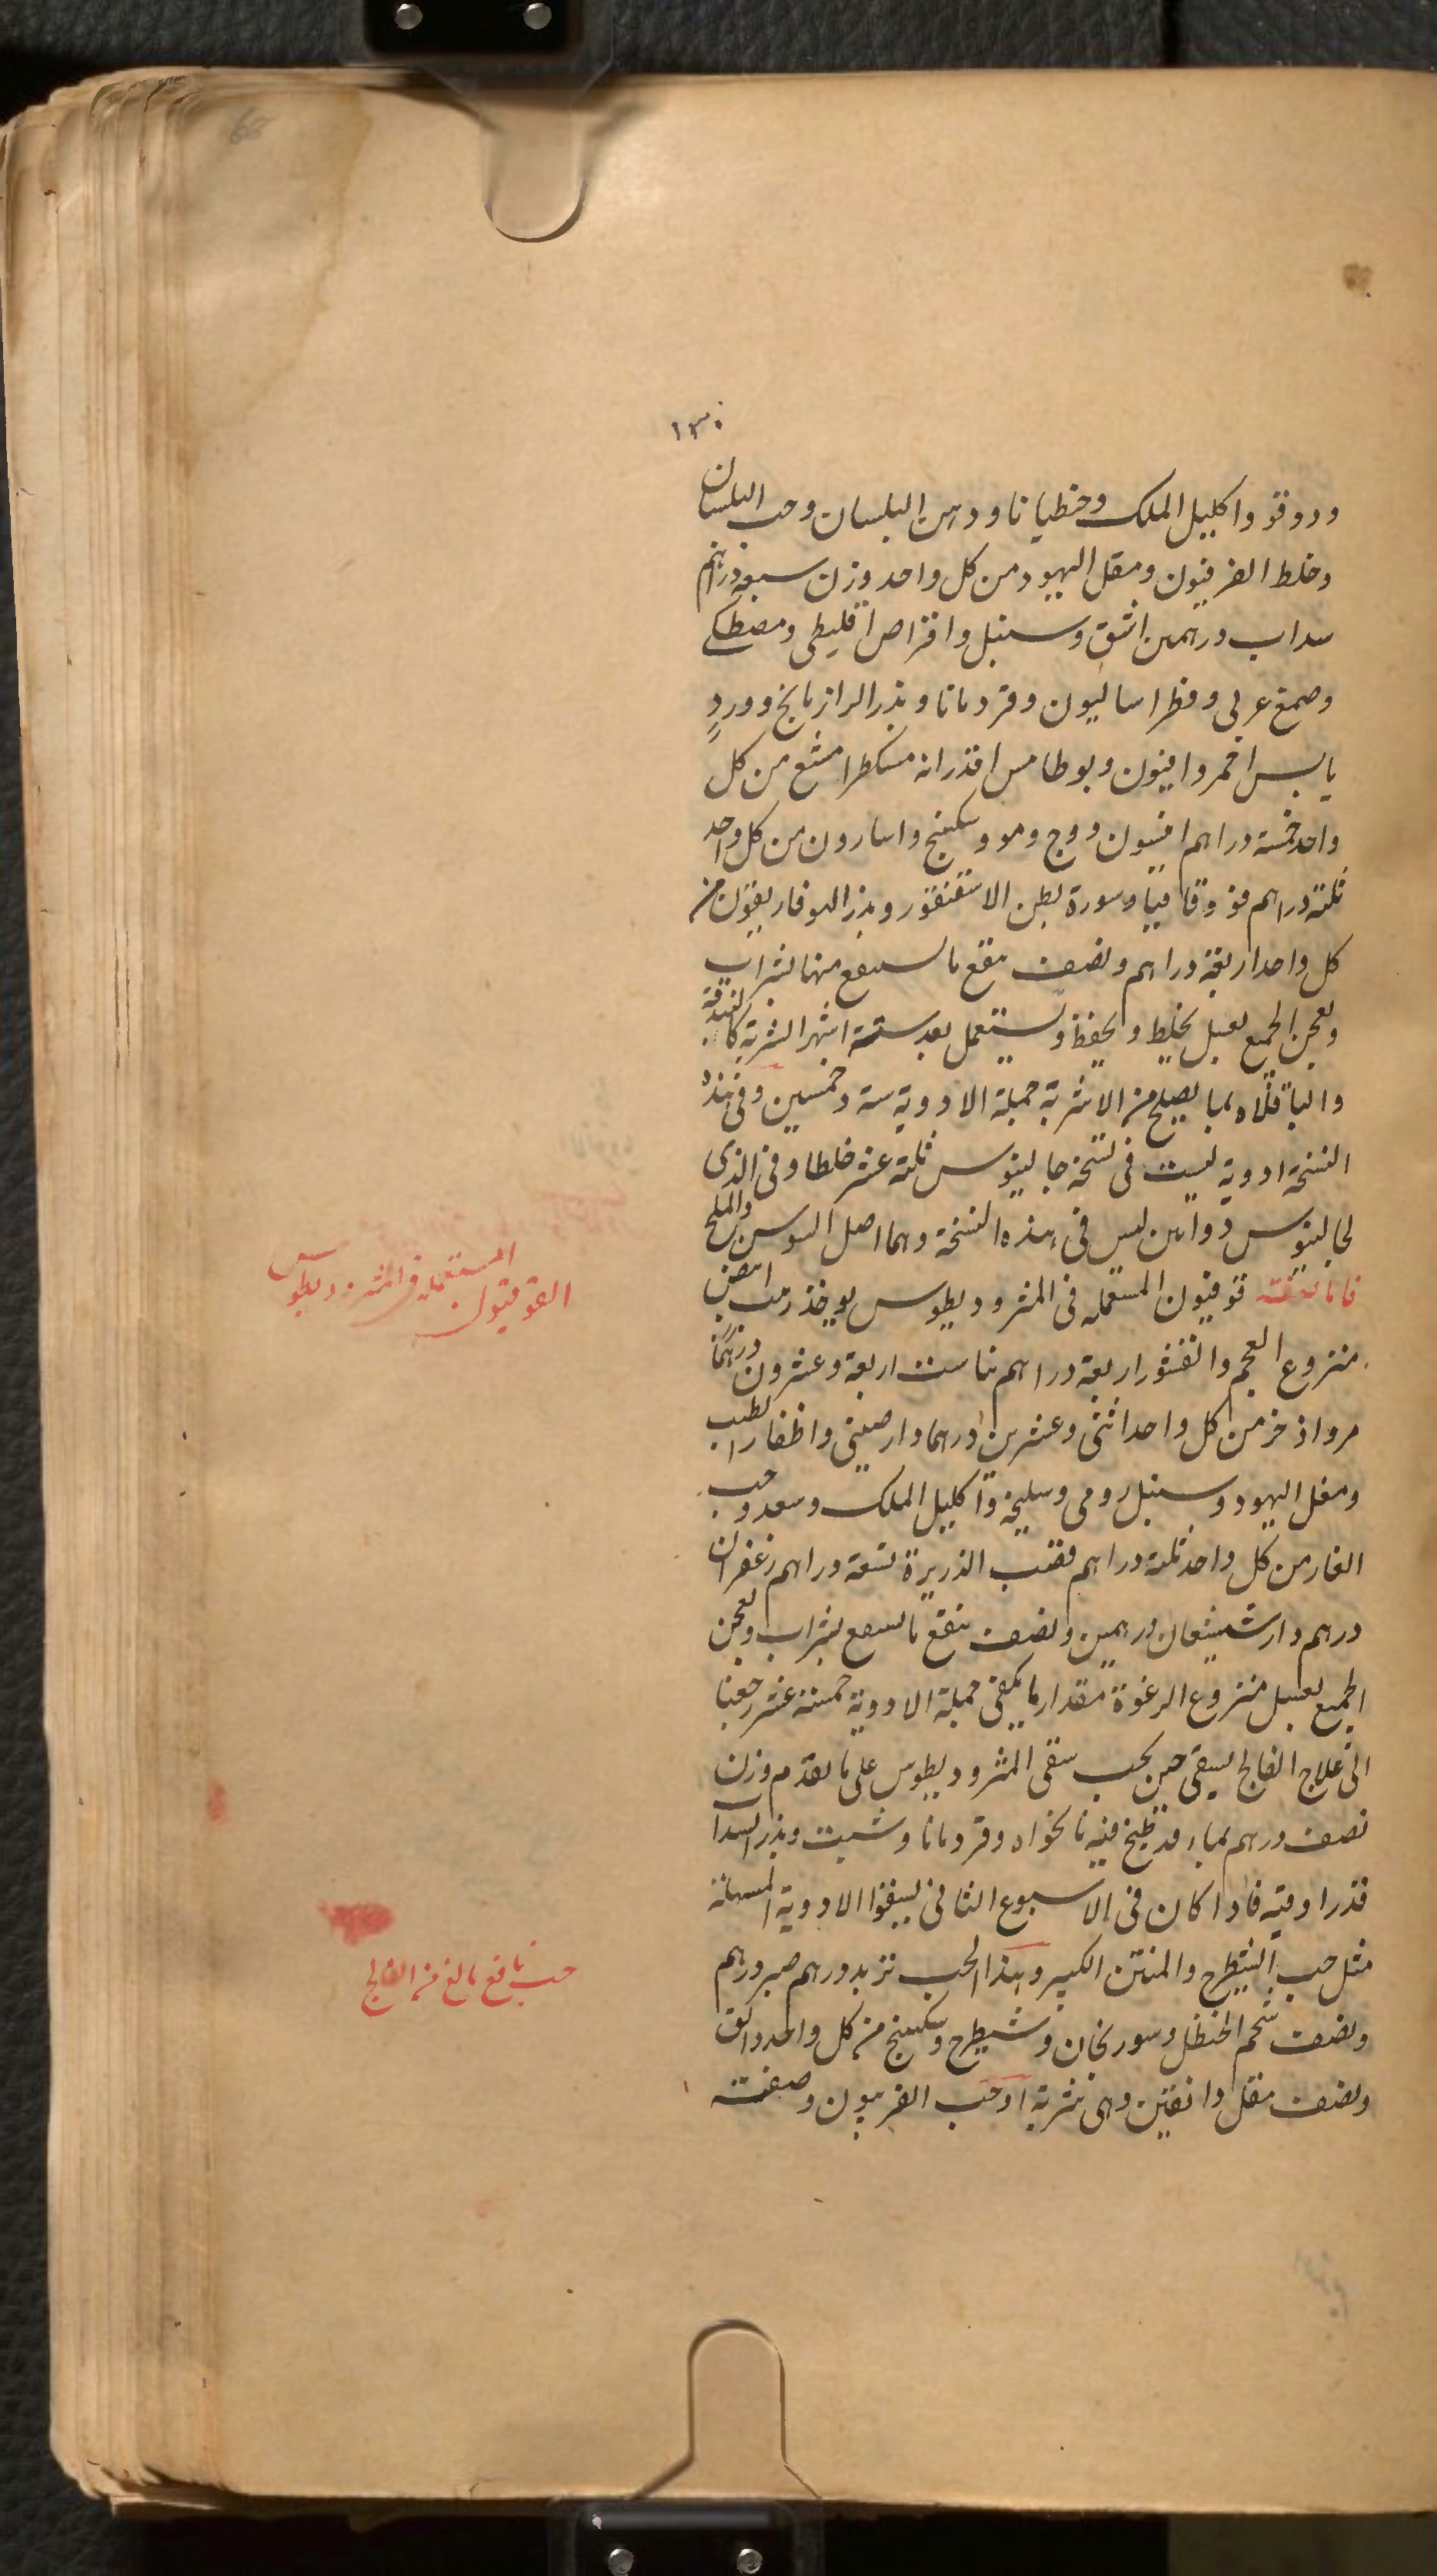 ١٣٠
ودوقو واكليل الملك وجنطيانا ودهن البلسان وحب البلسان
وخلط الفرفيون ومقل اليهود من كل واحد وزن سبعة دراهم
سداب درهمين اشق وسنبل واقراص اقليطى ومصطكى
وصمغ عربى وفطراساليون وقردمانا وبذر الرازيانج وورد
يابس احمر وافيون وبوطامس اقذرانه مسكطرامشع من كل
واحد خمسة دراهم انيسون ووج ومو وسكبينج واسارون من كل واحد
ثلثة دراهم فو وقاقيا وسورة بطن الاسقنقور وبذر الهوفاريقون من
كل واحد اربعة دراهم ونصف ينقع ما ينقع منها بشراب
ويعجن الجميع بعسل يخلط ويحفظ ويستعمل بعد ستة اشهر الشربة كالبندقة
والباقلاه بما يصلح من الاشربة جملة الادوية ستة وخمسين وفى هذه
النسخة ادوية ليست فى نسخة جالينوس ثلثة عشر خلطا وفى الذى
لجالينوس دوائين ليس فى هذه النسخة وهما اصل السوسن والملح
فاما صفة قوفيون المستعمله فى المثروديطوس يوخذ زبيب ابيض
منزوع العجم والقشور اربعة دراهم علك اربعة وعشرون درهما
مر واذخر من كل واحد اثنى وعشرين درهما دارصينى واظفار الطيب
ومقل اليهود وسنبل رومى وسليخة واكليل الملك وسعد وحب
الغار من كل واحد ثلثة دراهم قصب الذريرة تسعة دراهم زعفران
درهم دارشيشعان درهمين ونصف ينقع ما ينقع بشراب ويعجن
الجميع بعسل منزوع الرغوة مقدار ما يكفى جملة الادوية خمسة عشر رجعنا
الى علاج الفالج ليسقى حين يجب سقى المثروديطوس على ما تقدم وزن
نصف درهم بماء قد طبخ فيه نانخواه وقردمانا وشبت وبذر السداب
قدر اوقيه فاذا كان فى الاسبوع الثانى ليسقوا الادوية المسهلة
مثل حب الشيطرج والمنتن الكبير وهذا الحب تربد درهم صبر درهم
ونصف شحم الحنظل وسورنجان وشيطرج وسكبينج من كل واحد دانق
ونصف مقل دانقين وهى شربة او حب الفربيون وصفته
القوفيون المستعمله فى المثروديطوس
حب نافع بالغ من الفالج